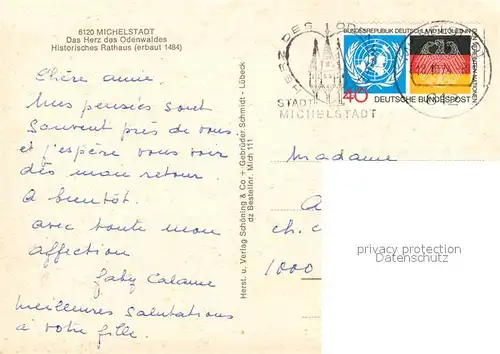 6120 MICHELSTADT
Das Herz des Odenwaldes
Historisches Rathaus (erbaut 1484)
Chère amie
Mes pensées sont
souvent près de vous
et j'espère vous voir
dès mon retour.
A bientôt.
avec toute mon
affection
Gaby Calame
Meilleures salutations
à votre fille.
Herst. u. Verlag Schöning & Co + Gebrüder Schmidt - Lübeck
dz Bestellnr. Mich 111
BUNDESREPUBLIK DEUTSCHLAND MITGLIED IN
DEN VEREINTEN NATIONEN
40 DEUTSCHE BUNDESPOST
HERZ DES
STADT
MICHELSTADT
Madame
A
ch. c
1000
privacy protection
Datenschutz